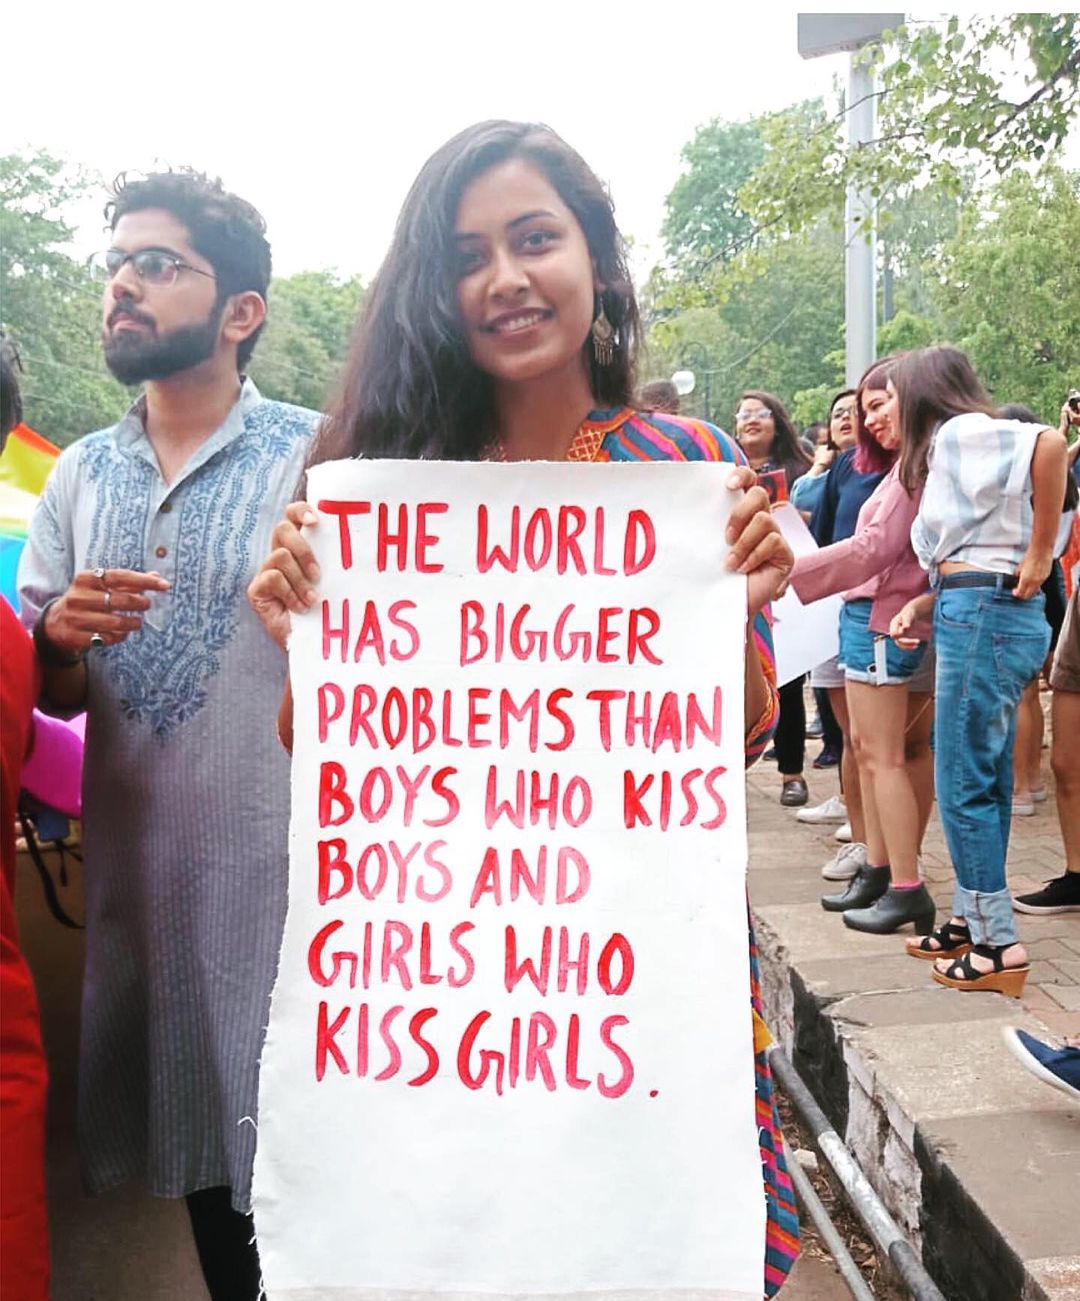 THE WORLD
HAS BIGGER
PROBLEMS THAN
BOYS WHO KISS
BOYS AND
GIRLS WHO
KISS GIRLS.